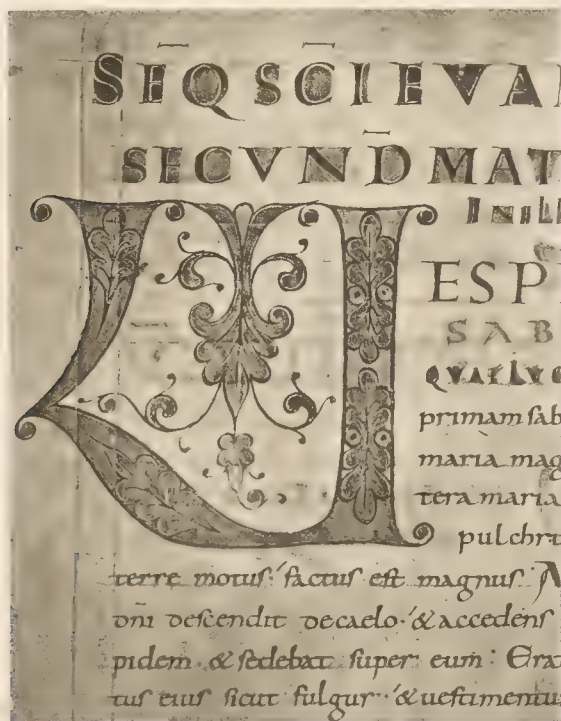 SEQ̄ SC̄I EVA
SECVND̄ MAT
IN ILL
VESPE
SAB
QVAE LVC
primam sab
maria mag
tera maria
pulchr
terre motus factus est magnus. A
dnī descendit de caelo. & accedens
pidem. & sedebat super eum: Erat
tus eius sicut fulgur. & uestimentu